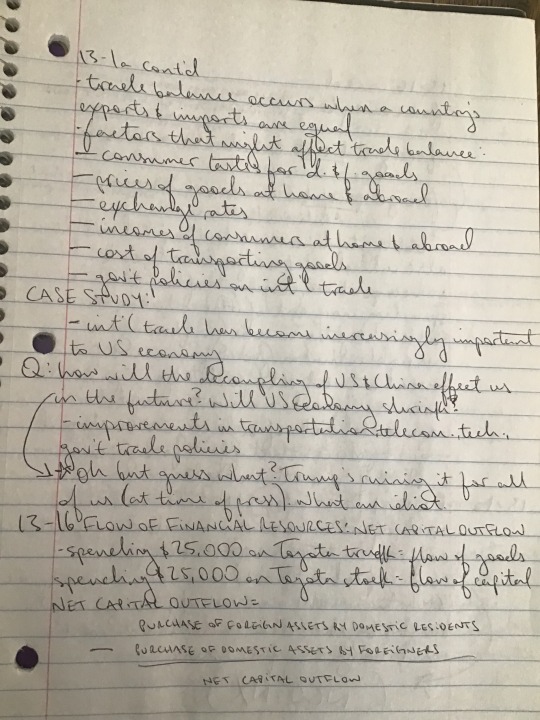 13-1a cont'd
- trade balance occurs when a country's
exports & imports are equal
- factors that might affect trade balance:
— consumer tastes for d. & f. goods
— prices of goods at home & abroad
— exchange rates
— incomes of consumers at home & abroad
— cost of transporting goods
— gov't policies on int'l trade
CASE STUDY:
- int'l trade has become increasingly important
to US economy
Q: how will the decoupling of US & China effect us
in the future? Will US economy shrink?
- improvements in transportation, telecom., tech.,
gov't trade policies
* Oh but guess what? Trump's ruining it for all
of us (at time of press). What an idiot.
13-1b FLOW OF FINANCIAL RESOURCES: NET CAPITAL OUTFLOW
- spending $25,000 on Toyota truck = flow of goods
spending $25,000 on Toyota stock = flow of capital
NET CAPITAL OUTFLOW =
PURCHASE OF FOREIGN ASSETS BY DOMESTIC RESIDENTS
— PURCHASE OF DOMESTIC ASSETS BY FOREIGNERS
NET CAPITAL OUTFLOW